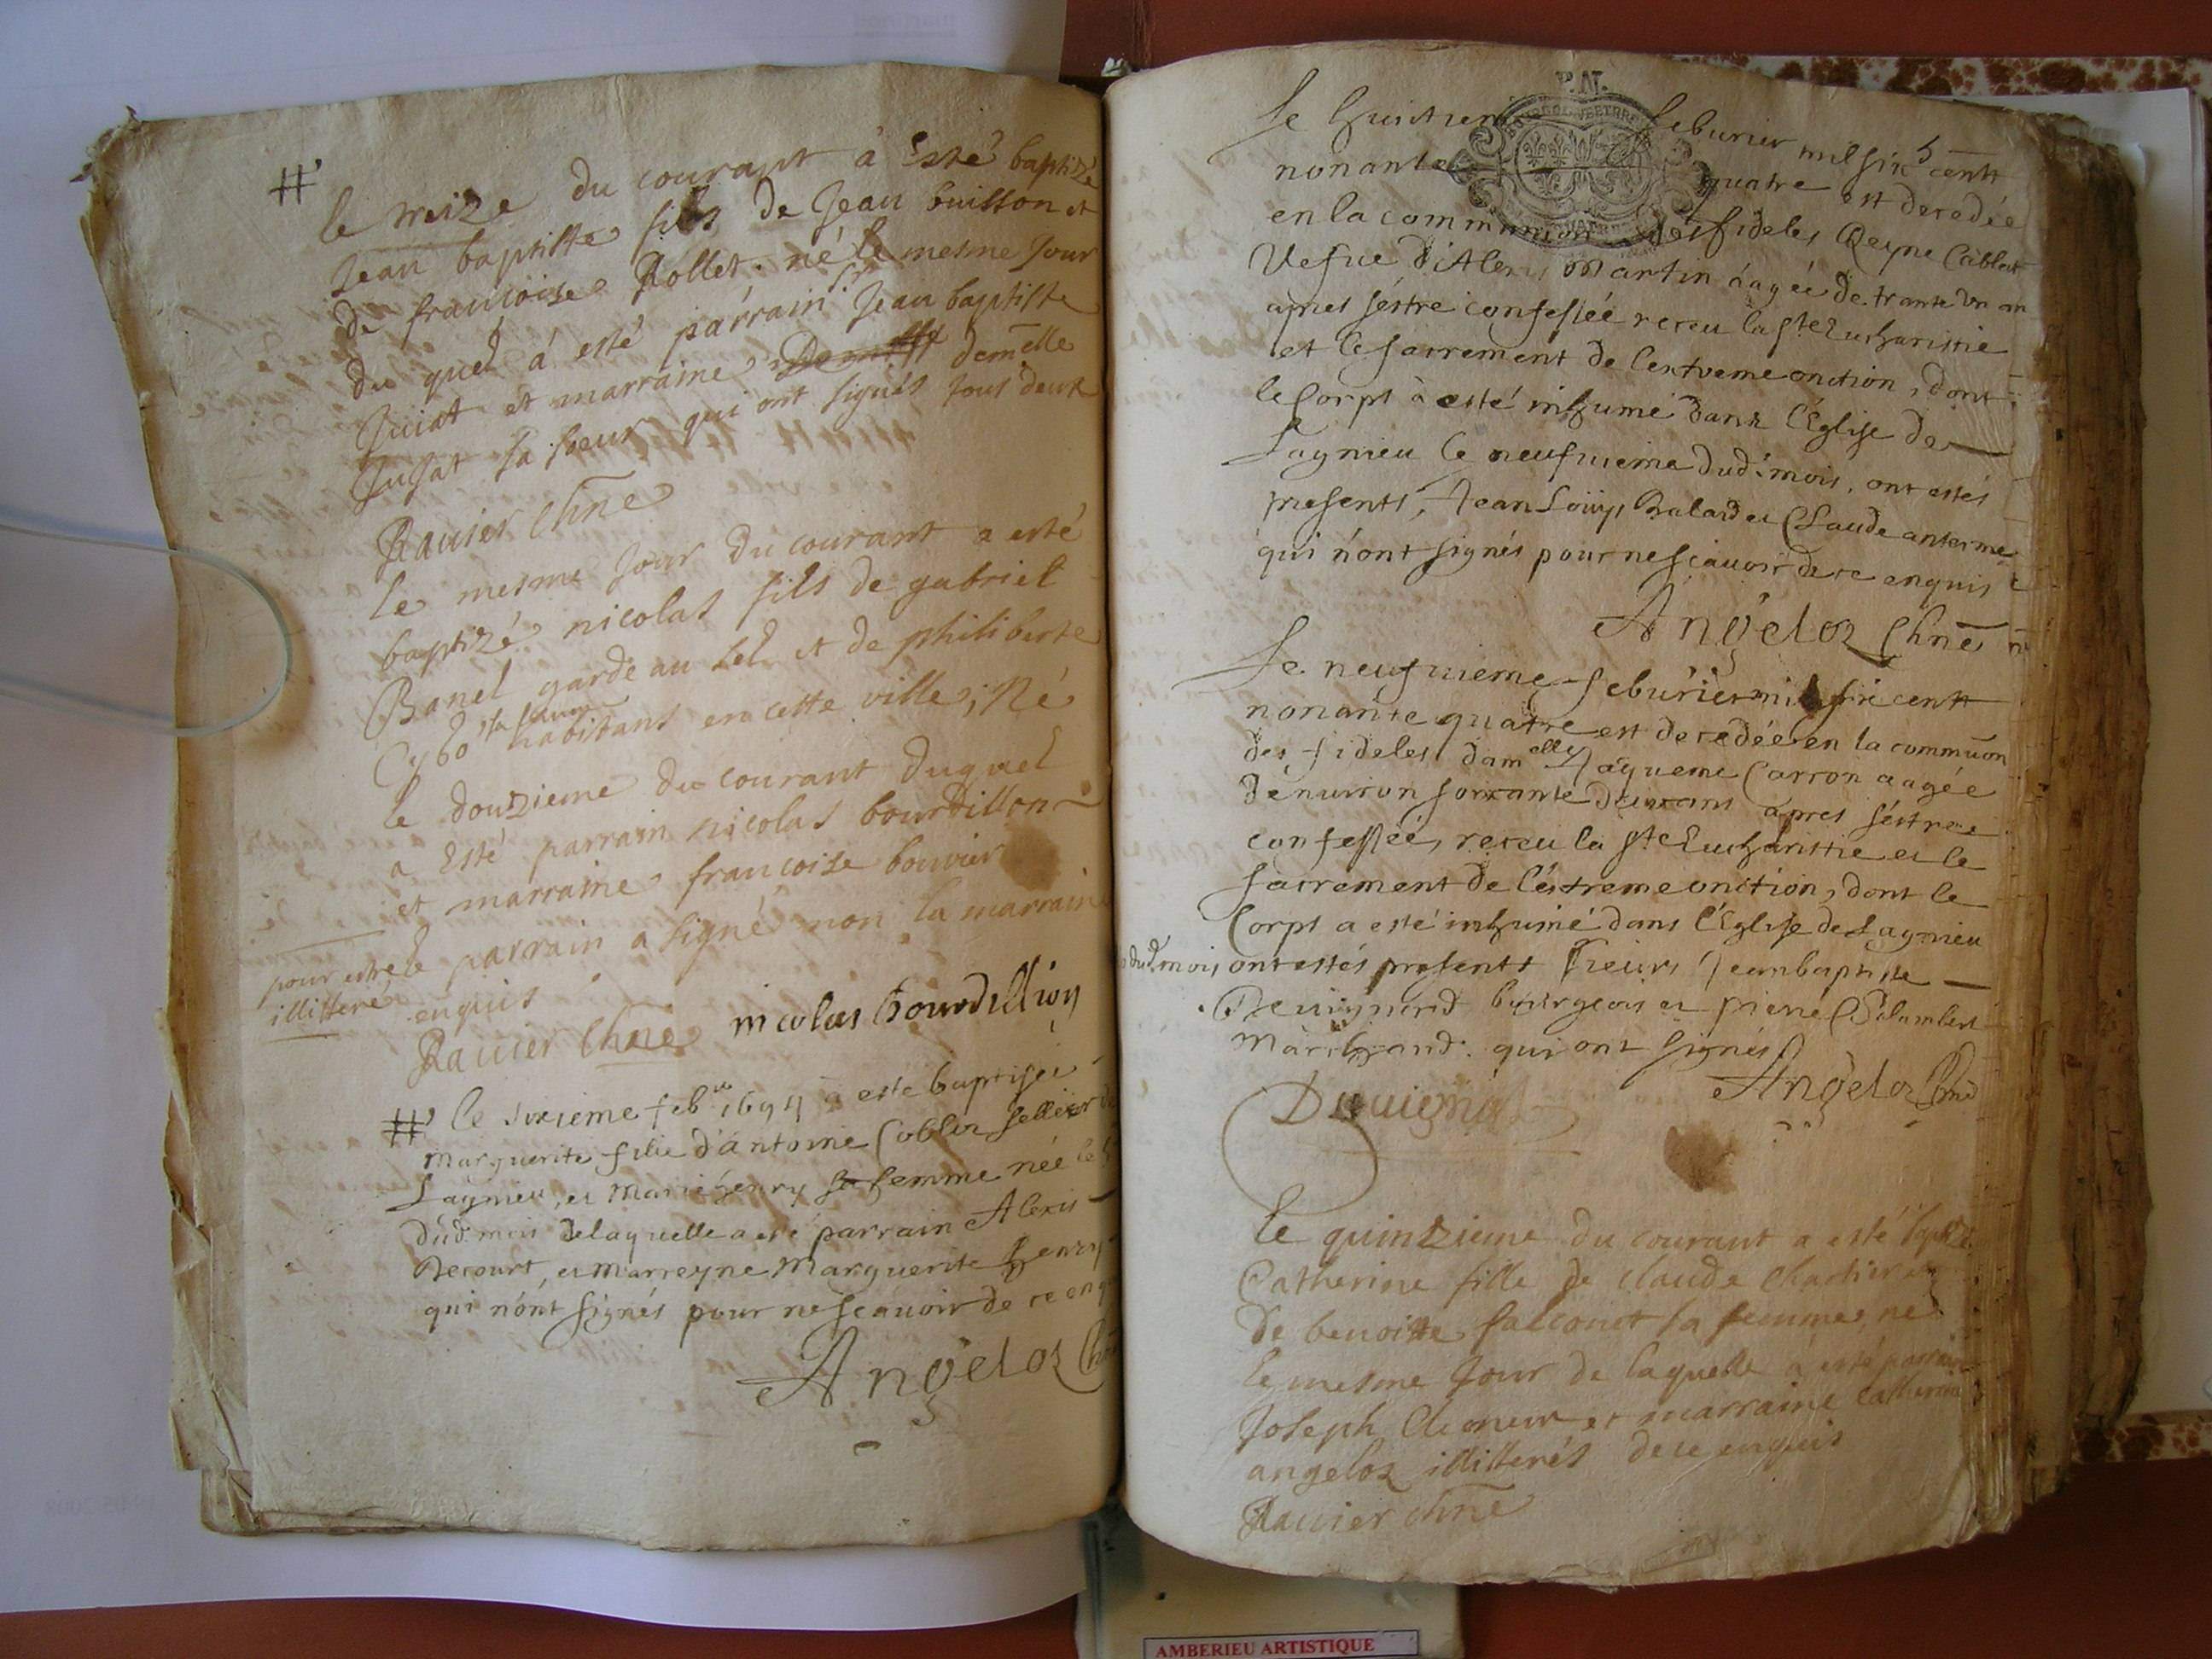 le treize du courant à Esté baptizé
Jean baptiste fils de Jean buisson et
de francoise Rollet. né le mesme Jour
du quel á esté parrain Sr Jean baptiste
et marraine demelle
sa soeur qui ont signés tous deux
Rauier Chne
le mesme Jour du courant a esté
baptizé nicolas fils de gabriel
Banel garde au sel et de philiberte
Cybo sa femme habitans en cette ville, Né
le douzieme du courant duquel
a Esté parrain nicolas bourdillon
et marraine francoise bouvier
le parrain a signé non la marraine
pour estre
illitteré enquis
Rauier Chne nicolas bourdillion
le sixieme feb 1694 a esté baptisée
Marguerite fille d'antoine Coblez sellier de
Lagnieu, et Marie henry sa femme née le 5
dud. mois de laquelle a été parrain Alexis
Recourt, et marreyne Marguerite henry
qui n'ont signés pour ne scauoir de ce enq
Angelot Chne
P.N.
Le huictiem feburier mil six cents
nonante quatre est decedée
en la communion des fideles Reyne
Vefue d'Alexis Martin áagée de trante vn an
apres s'éstre confessée receu la Ste Eucharistie
et le sacrement de l'extreme onction, dont
le Corps à esté inhumé dans l'Eglise de
Lagnieu le neufuieme dud. mois, ont estés
presents, Jean Louys Balard et Claude anterme
qui n'ont signés pour ne scauoir de ce enquis
Angelot Chne
Le neufuieme feburier mil six cents
nonante quatre est decedée en la commuon
des fideles damelle Jaqueme Carron aagée
d'énuiron soixante deux ans apres s'éstre
confessée, receu la Ste Eucharistie et le
sacrement de l'éxtreme onction, dont le
Corps a esté inhumé dans l'Eglise de Lagnieu
dud. mois ont estés presents sieurs Jean baptiste
bourgeois et pierre
Marchand. qui ont signés
Angelot Chne
Le quinzieme du courant a esté bptzé
Catherine fille de claude Chartier et
de benoitte falconet sa femme, né
le mesme Jour de laquelle á esté parrain
Joseph et marraine Catherine
angelot illitterés de ce enquis
Rauier Chne
AMBERIEU ARTISTIQUE